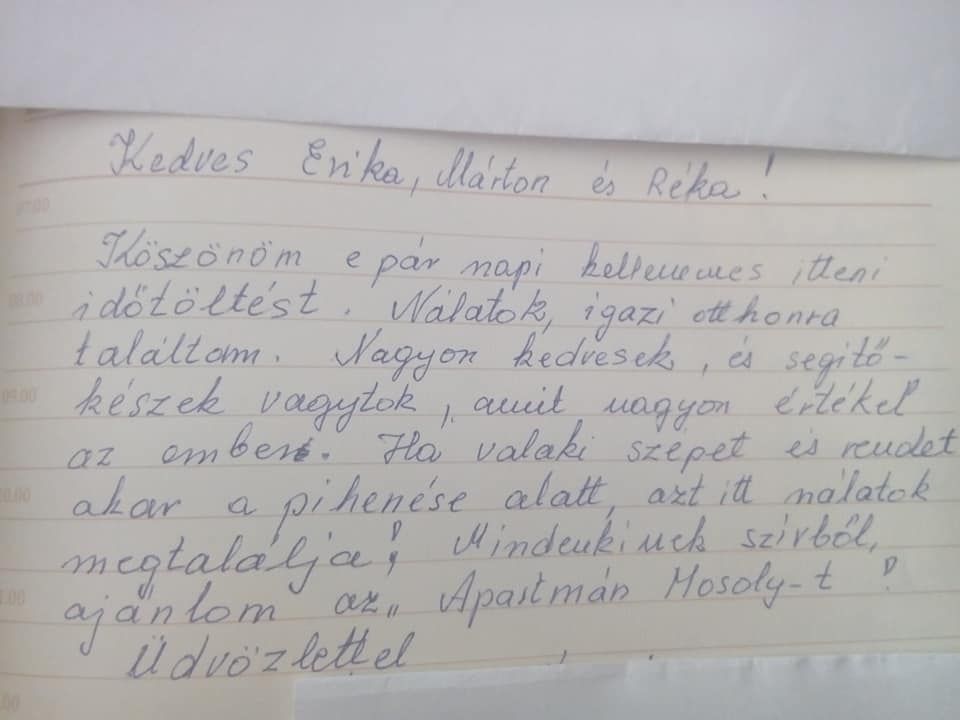 Kedves Erika, Márton és Réka!
Köszönöm e pár napi kellemes itteni
időtöltést. Nálatok, igazi otthonra
találtam. Nagyon kedvesek, és segitő-
készek vagytok, amit nagyon értékel
az ember. Ha valaki szépet és rendet
akar a pihenése alatt, azt itt nálatok
megtalálja! Mindenkinek szívből,
ajánlom az „ Apartmán Mosoly-t !
Üdvözlettel